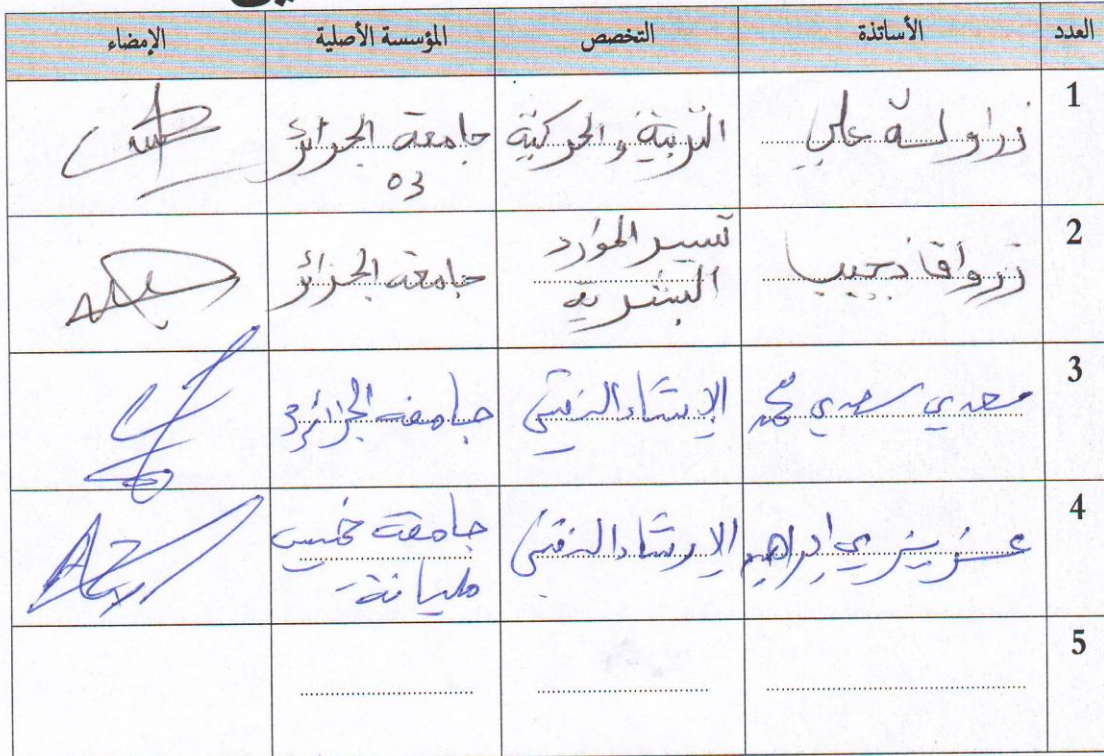 العدد الأساتذة التخصص المؤسسة الأصلية الإمضاء
1 زراولة علي التربية والحركية جامعة الجزائر
03
2 زرواق نجيب تسيير الموارد جامعة الجزائر
البشرية
3 سعدي سعدي محمد الإرشاد النفسي جامعة الجزائر 3
4 عزيزي إبراهيم الإرشاد النفسي جامعة خميس
مليانة
5